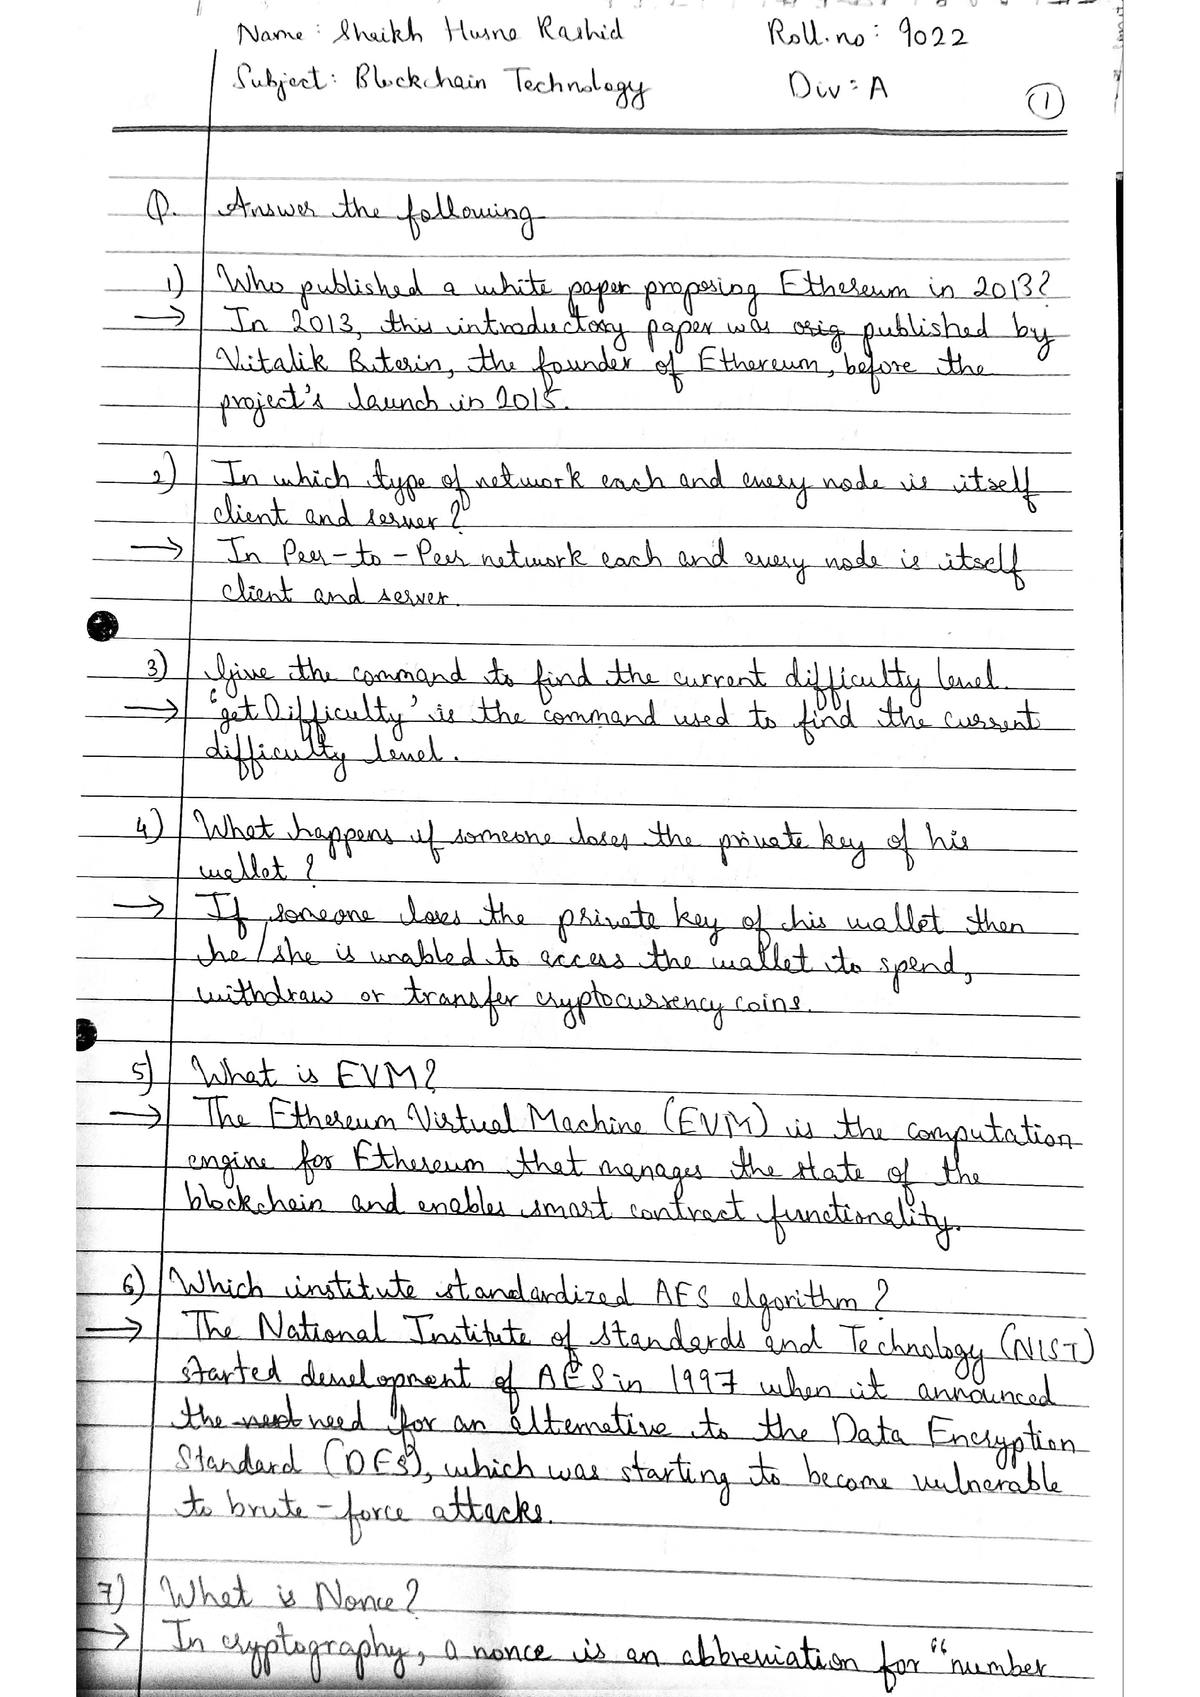 Name : Shaikh Husna Rashid Roll.no : 9022
Subject : Blockchain Technology Div : A
1
Q. Answer the following
1) Who published a white paper proposing Ethereum in 2013?
→ In 2013, this introductory paper was orig published by
Vitalik Buterin, the founder of Ethereum, before the
project's launch in 2015.
2) In which type of network each and every node is itself
client and server ?
→ In Peer-to-Peer network each and every node is itself
client and server.
3) Give the command to find the current difficulty level.
→ 'getDifficulty' is the command used to find the current
difficulty level.
4) What happens if someone loses the private key of his
wallet ?
→ If someone loses the private key of his wallet then
he/she is unabled to access the wallet to spend,
withdraw or transfer cryptocurrency coins.
5) What is EVM?
→ The Ethereum Virtual Machine (EVM) is the computation
engine for Ethereum that manages the state of the
blockchain and enables smart contract functionality.
6) Which institute standardized AES algorithm ?
→ The National Institute of Standards and Technology (NIST)
started development of AES in 1997 when it announced
the need for an alternative to the Data Encryption
Standard (DES), which was starting to become vulnerable
to brute-force attacks.
7) What is Nonce?
→ In cryptography, a nonce is an abbreviation for "number